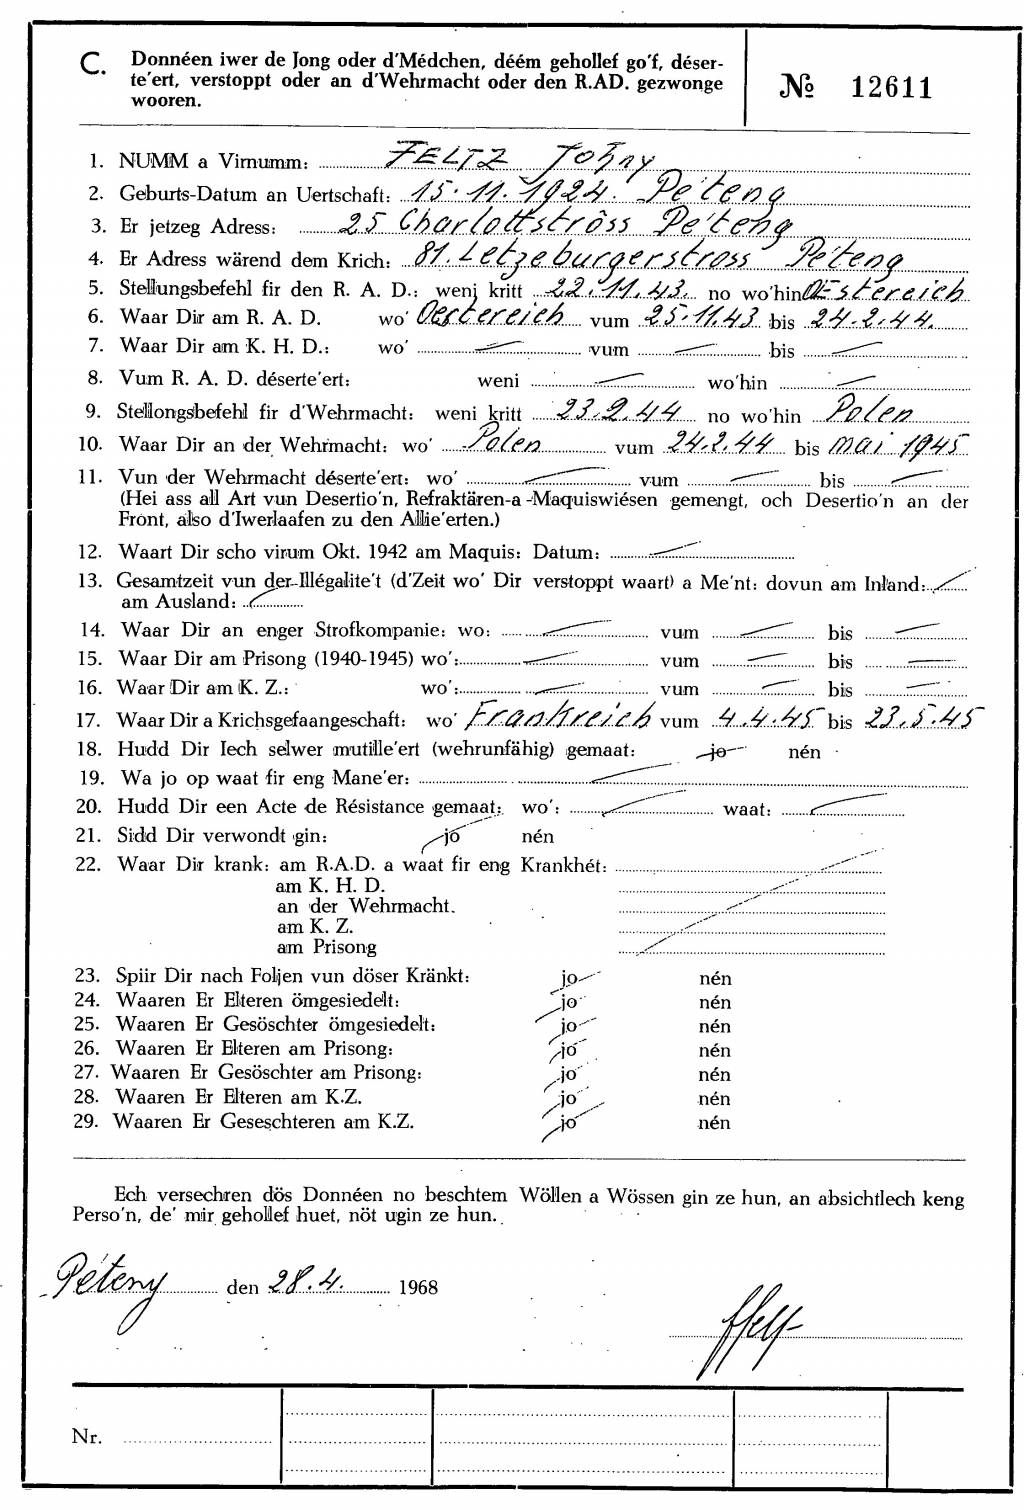 C. Donnéen iwer de Jong oder d'Médchen, déém gehollef go'f, déser-
te'ert, verstoppt oder an d'Wehrmacht oder den R.AD. gezwonge
wooren.
№ 12611
1. NUMM a Virnumm: FELTZ Johny
2. Geburts-Datum an Uertschaft: 15.11.1924. Pe'teng
3. Er jetzeg Adress: 25 Charlottströss Pe'teng
4. Er Adress wärend dem Krich: 81. Letzeburgerstross Péteng
5. Stellungsbefehl fir den R. A. D.: weni kritt 22.11.43. no wo'hin OEstereich
6. Waar Dir am R. A. D. wo' Oestereich vum 25.11.43 bis 24.2.44.
7. Waar Dir am K. H. D.: wo' vum bis
8. Vum R. A. D. déserte'ert: weni wo'hin
9. Stellongsbefehl fir d'Wehrmacht: weni kritt 23.2.44 no wo'hin Polen
10. Waar Dir an der Wehrmacht: wo' Polen vum 24.2.44 bis Mai 1945
11. Vun der Wehrmacht déserte'ert: wo' vum bis
(Hei ass all Art vun Desertio'n, Refraktären-a-Maquiswiésen gemengt, och Desertio'n an der
Front, also d'Iwerlaafen zu den Allie'erten.)
12. Waart Dir scho virum Okt. 1942 am Maquis: Datum:
13. Gesamtzeit vun der Illégalite't (d'Zeit wo' Dir verstoppt waart) a Me'nt: dovun am Inland:
am Ausland:
14. Waar Dir an enger Strofkompanie: wo: vum bis
15. Waar Dir am Prisong (1940-1945) wo': vum bis
16. Waar Dir am K. Z.: wo': vum bis
17. Waar Dir a Krichsgefaangeschaft: wo' Frankreich vum 4.4.45 bis 23.5.45
18. Hudd Dir Iech selwer mutille'ert (wehrunfähig) gemaat: jo nén
19. Wa jo op waat fir eng Mane'er:
20. Hudd Dir een Acte de Résistance gemaat: wo': waat:
21. Sidd Dir verwondt gin: jo nén
22. Waar Dir krank: am R.A.D. a waat fir eng Krankhét:
am K. H. D.
an der Wehrmacht.
am K. Z.
am Prisong
23. Spiir Dir nach Foljen vun döser Kränkt: jo nén
24. Waaren Er Elteren ömgesiedelt: jo nén
25. Waaren Er Gesöschter ömgesiedelt: jo nén
26. Waaren Er Elteren am Prisong: jo nén
27. Waaren Er Gesöschter am Prisong: jo nén
28. Waaren Er Elteren am K.Z. jo nén
29. Waaren Er Geseschteren am K.Z. jo nén
Ech versechren dös Donnéen no beschtem Wöllen a Wössen gin ze hun, an absichtlech keng
Perso'n, de' mir gehollef huet, nöt ugin ze hun.
Péteng den 28.4. 1968
Nr.